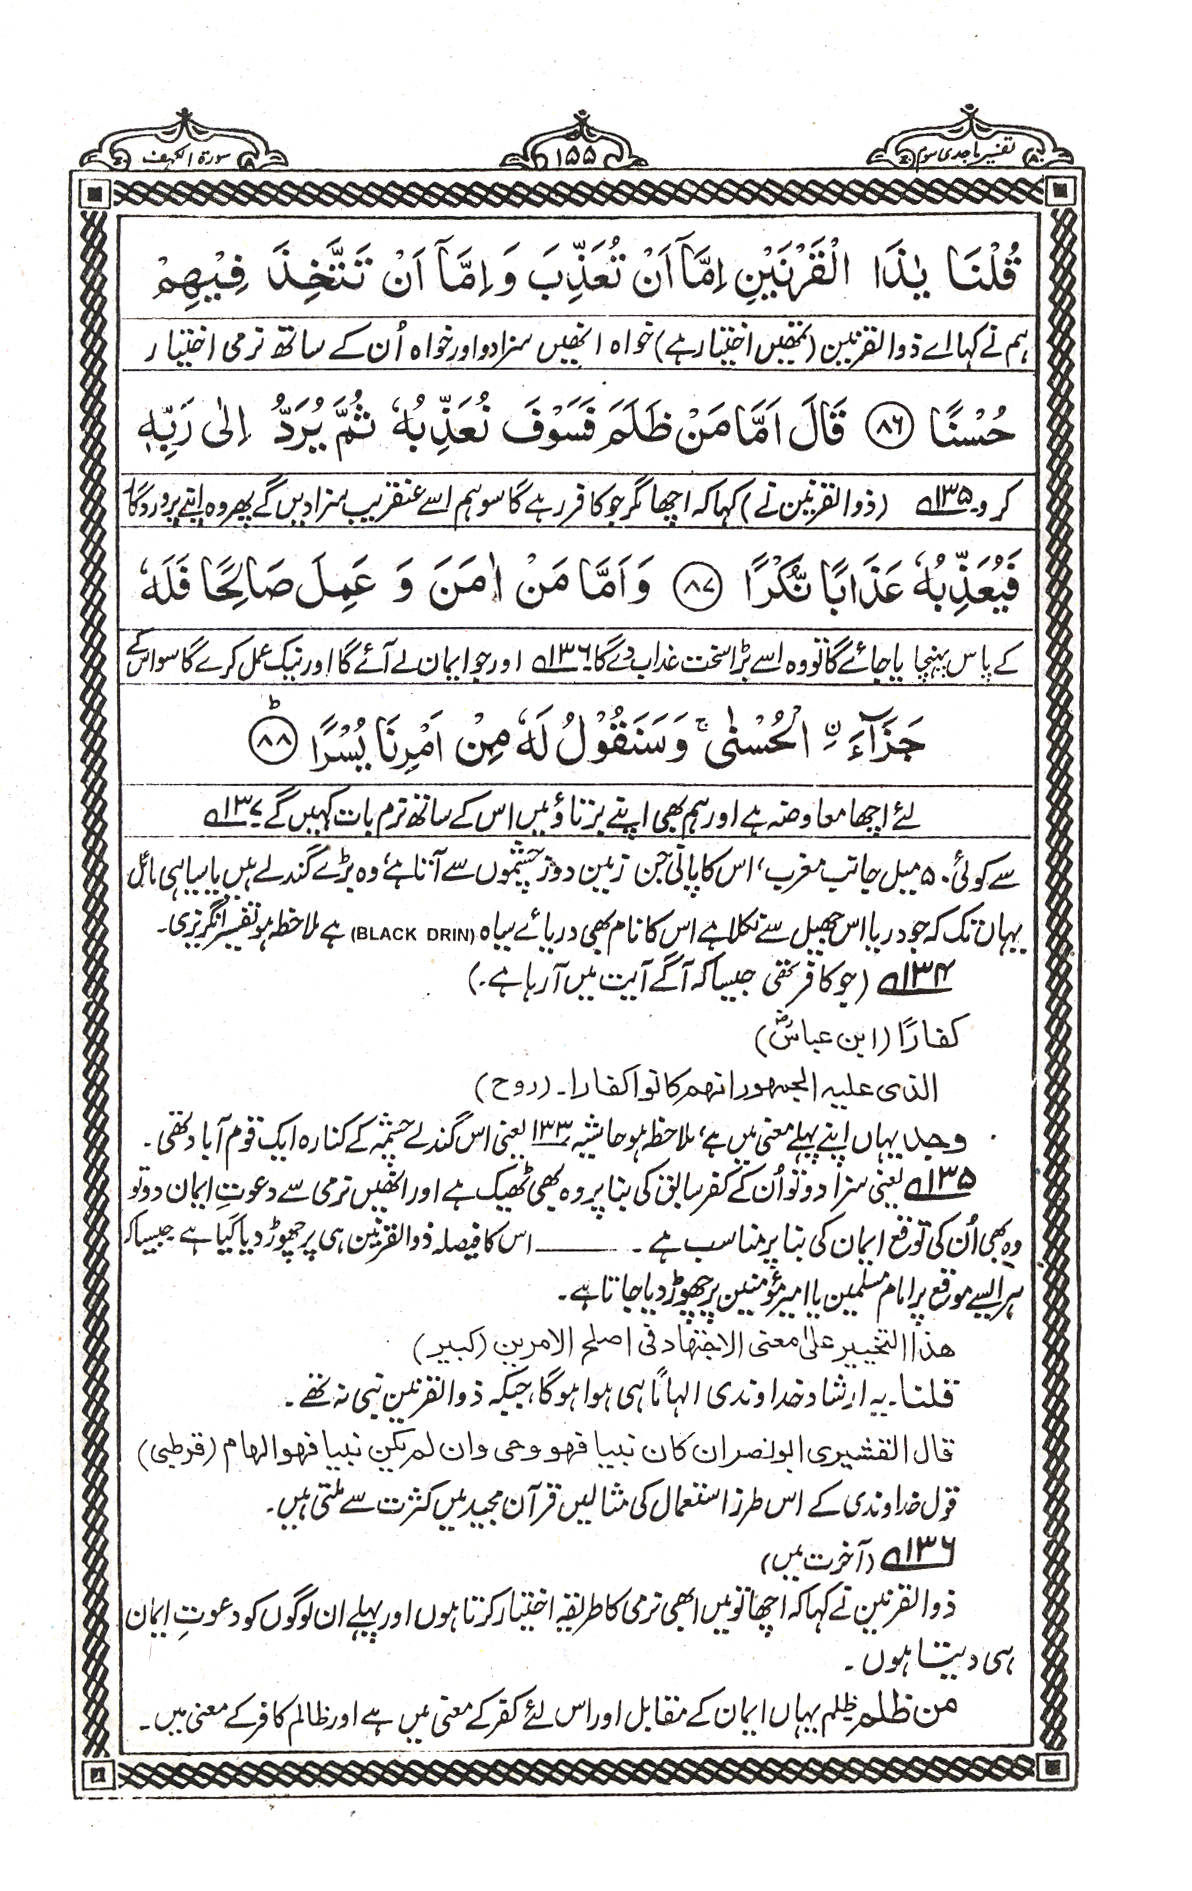 تفسیر ماجدی سوم
۱۵۵
سورۃ الکہف
قُلْنَا يٰذَا الْقَرْنَيْنِ اِمَّآ اَنْ تُعَذِّبَ وَ اِمَّآ اَنْ تَتَّخِذَ فِيْهِمْ
ہم نے کہا اے ذوالقرنین (تمھیں اختیار ہے) خواہ انھیں سزا دو اور خواہ اُن کے ساتھ نرمی اختیار
حُسْنًا ﴿۸۶﴾ قَالَ اَمَّا مَنْ ظَلَمَ فَسَوْفَ نُعَذِّبُهٗ ثُمَّ يُرَدُّ اِلٰى رَبِّهٖ
کرو۔ ۱۳۵؎ (ذوالقرنین نے) کہا کہ اچھا مگر جو کافر رہے گا سو ہم اسے عنقریب سزا دیں گے پھر وہ اپنے پروردگار
فَيُعَذِّبُهٗ عَذَابًا نُّكْرًا ﴿۸۷﴾ وَ اَمَّا مَنْ اٰمَنَ وَ عَمِلَ صَالِحًا فَلَهٗ
کے پاس پہنچایا جائے گا تو وہ اسے بڑا سخت عذاب دے گا ۱۳۶؎ اور جو ایمان لے آئے گا اور نیک عمل کرے گا سو اس کے
جَزَآءَ ِۨ الْحُسْنٰى ۚ وَ سَنَقُوْلُ لَهٗ مِنْ اَمْرِنَا يُسْرًا ﴿۸۸﴾ ؕ
لئے اچھا معاوضہ ہے اور ہم بھی اپنے برتاؤ میں اس کے ساتھ نرم بات کہیں گے ۱۳۷؎
سے کوئی ۵۰ میل جانب مغرب، اس کا پانی جن زمین دوز چشموں سے آتا ہے، وہ بڑے گندلے ہیں یا سیاہی مائل
یہاں تک کہ جو دریا اس جھیل سے نکلا ہے اس کا نام بھی دریائے سیاہ (BLACK DRIN) ہے ملاحظہ ہو تفسیر انگریزی۔
۱۳۴؎ (جو کافر تھی جیسا کہ آگے آیت میں آرہا ہے۔)
کفارًا (ابن عباسؓ)
الذی علیہ الجمہور انھم کانوا کفارا۔ (روح)
وجد یہاں اپنے پہلے معنی میں ہے، ملاحظہ ہو حاشیہ ۱۳۳ یعنی اس گندلے چشمہ کے کنارہ ایک قوم آباد تھی۔
۱۳۵؎ یعنی سزا دو تو اُن کے کفر سابق کی بنا پر وہ بھی ٹھیک ہے اور انھیں نرمی سے دعوتِ ایمان دو تو
وہ بھی اُن کی توقع ایمان کی بنا پر مناسب ہے ۔ ——— اس کا فیصلہ ذوالقرنین ہی پر چھوڑ دیا گیا ہے جیسا کہ
ہر ایسے موقع پر امام مسلمین یا امیر مؤمنین پر چھوڑ دیا جاتا ہے۔
ھذا التخییر علیٰ معنی الاجتھاد فی اصلح الامرین (کبیر)
قلنا۔ یہ ارشاد خداوندی الہامًا ہی ہوا ہوگا، جبکہ ذوالقرنین نبی نہ تھے۔
قال القشیری ابو نصر ان کان نبیا فھو وحی وان لم یکن نبیا فھو الھام (قرطبی)
قول خداوندی کے اس طرز استعمال کی مثالیں قرآن مجید میں کثرت سے ملتی ہیں۔
۱۳۶؎ (آخرت میں)
ذوالقرنین نے کہا کہ اچھا تو میں ابھی نرمی کا طریقہ اختیار کرتا ہوں اور پہلے ان لوگوں کو دعوتِ ایمان
ہی دیتا ہوں۔
من ظلم ظلم یہاں ایمان کے مقابل اور اس لئے کفر کے معنی میں ہے اور ظالم کافر کے معنی میں۔